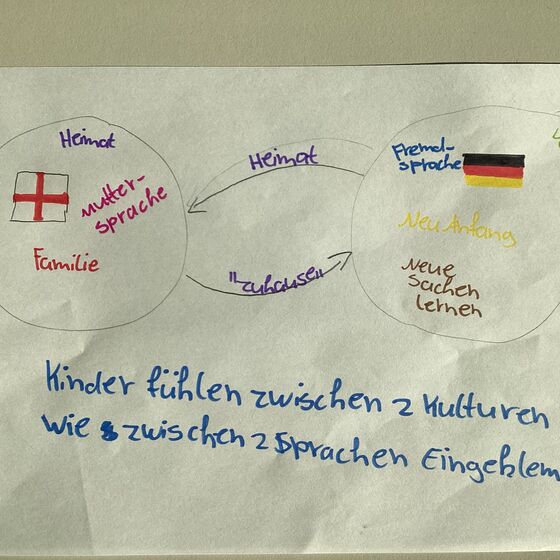 Heimat
Mutter-
sprache
Familie
Heimat
"Zuhause"
Fremd-
sprache
Neu Anfang
Neue
Sachen
lernen
Kinder fühlen zwischen 2 Kulturen
Wie zwischen 2 Sprachen Eingeklem